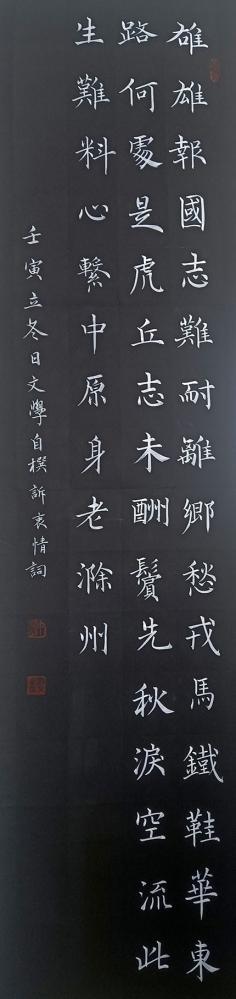 雄雄報國志難耐離鄉愁戎馬鐵鞋華東
路何處是虎丘志未酬鬢先秋淚空流此
生難料心繫中原身老滁州
壬寅立冬日文學自撰訴衷情詞